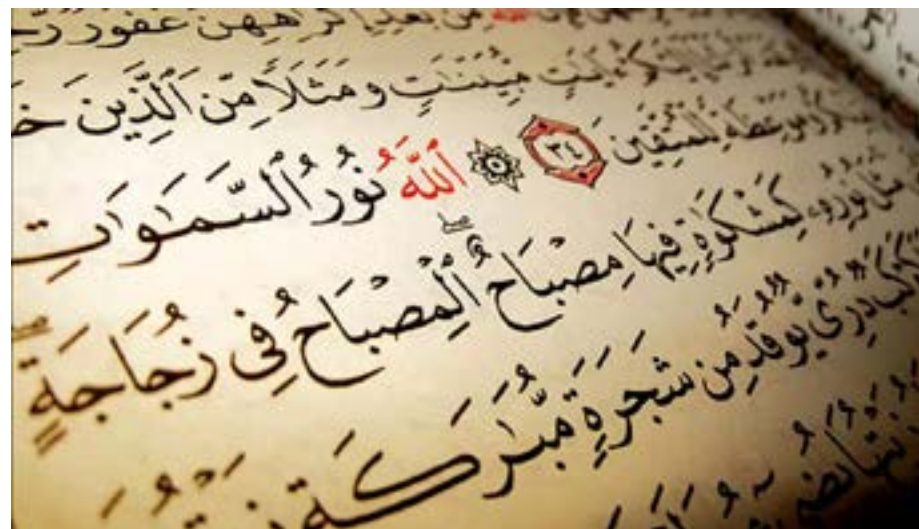 ٱللَّهَ مِنۢ بَعْدِ إِكْرَٰهِهِنَّ غَفُورٌ رَّحِ
إِلَيْكُمْ ءَايَٰتٍ مُّبَيِّنَٰتٍ وَمَثَلًا مِّنَ ٱلَّذِينَ خَ
وَمَوْعِظَةً لِّلْمُتَّقِينَ ٣٤ ۞ ٱللَّهُ نُورُ ٱلسَّمَٰوَٰتِ
مَثَلُ نُورِهِۦ كَمِشْكَوٰةٍ فِيهَا مِصْبَاحٌ ۖ ٱلْمِصْبَاحُ فِى زُجَاجَةٍ ۖ
كَوْكَبٌ دُرِّىٌّ يُوقَدُ مِن شَجَرَةٍ مُّبَٰرَكَةٍ زَيْتُو